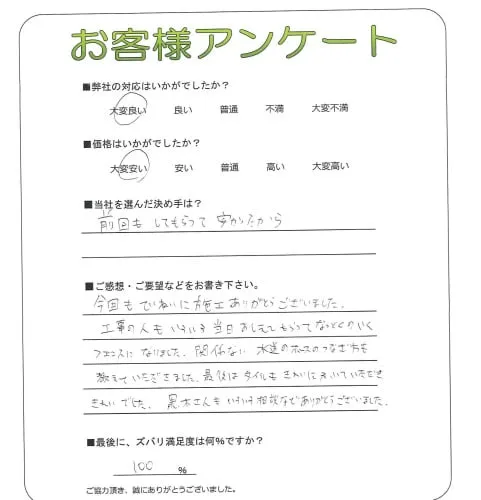 お客様アンケート
■弊社の対応はいかがでしたか？
大変良い 良い 普通 不満 大変不満
■価格はいかがでしたか？
大変安い 安い 普通 高い 大変高い
■当社を選んだ決め手は？
前回も してもらって 安かったから
■ご感想・ご要望などをお書き下さい。
今回もていねいに施工ありがとうございました。
工事の人もいろいろ当日おしえてもらってなっとくのいく
フェンスになりました。関係ない 水道のホースのつなぎ方も
教えていただきました。最後はタイルもきれいにふいていただき
きれいでした。 黒木さんもいろいろ相談などありがとうございました。
■最後に、ズバリ満足度は何%ですか？
100 %
ご協力頂き、誠にありがとうございました。